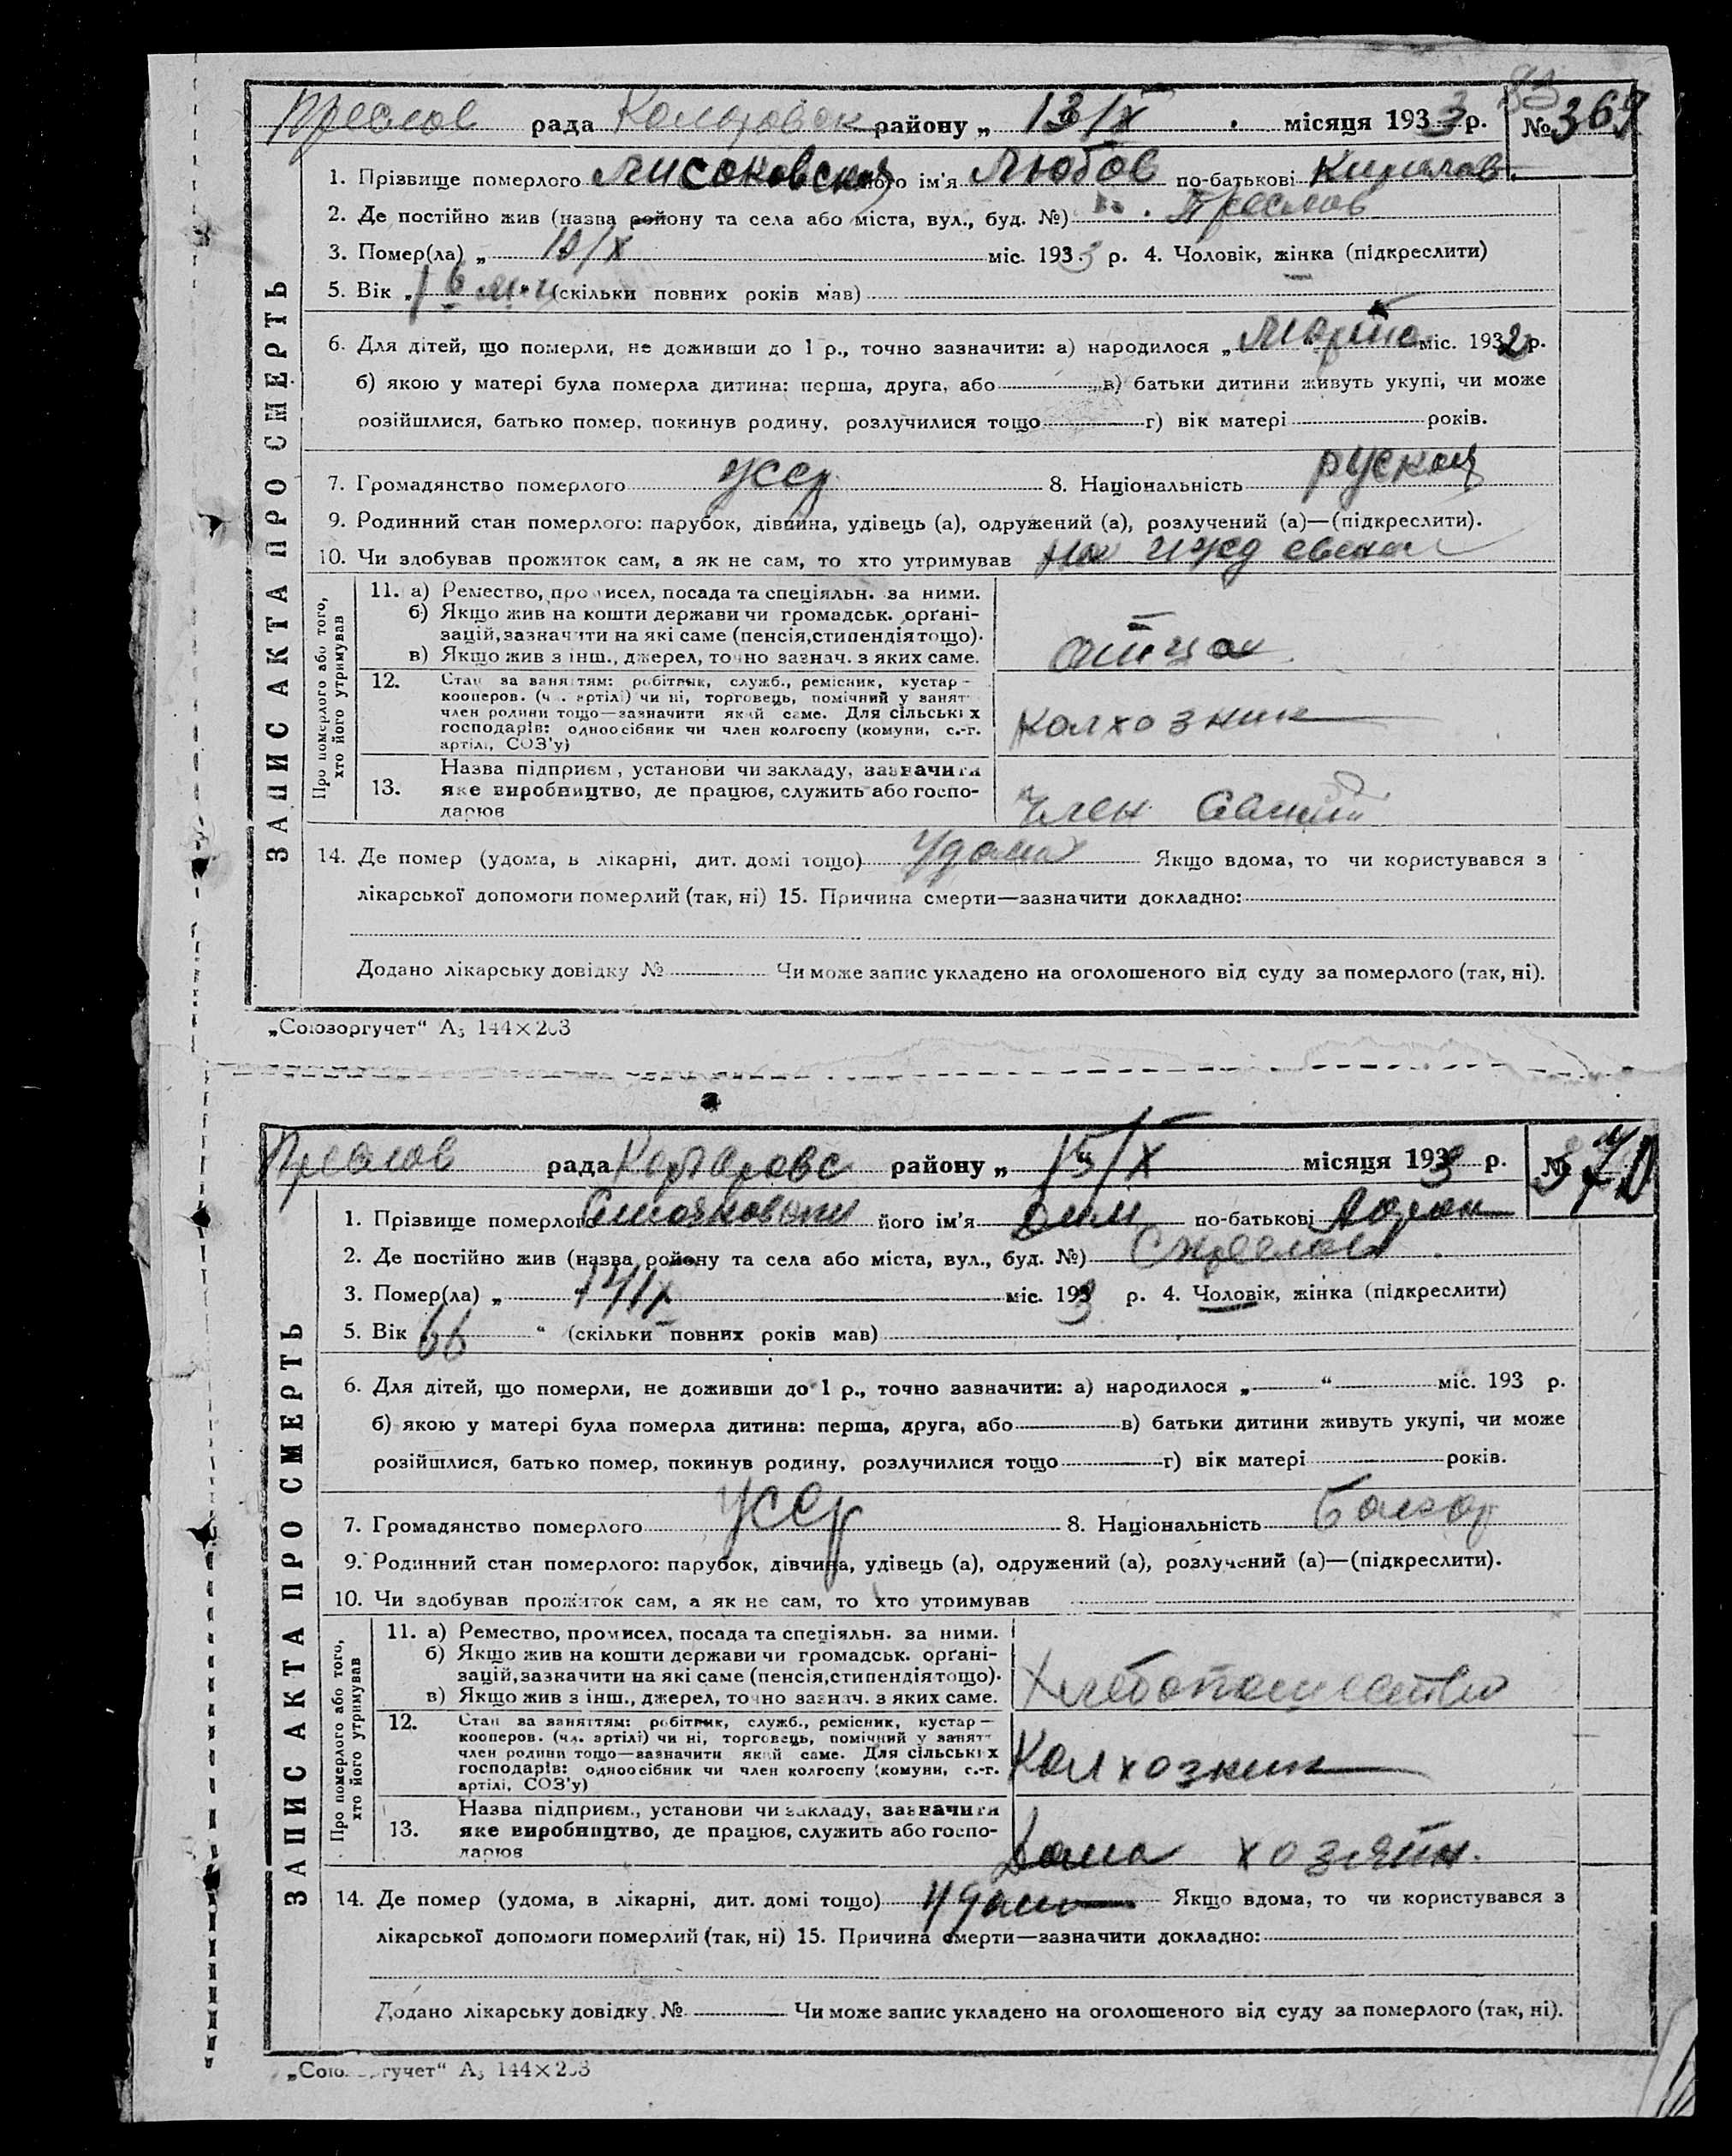 Преслов рада Коларовск району „ 13/IX місяця 1933 р. № 369
1. Прізвище померлого його ім'я Любов по-батькові Кирилов.
2. Де постійно жив (назва району та села або міста, вул., буд. №) Преслов
3. Помер(ла) „ міс. 1933 р. 4. Чоловік, жінка (підкреслити)
5. Вік „ (скільки повних років мав)
6. Для дітей, що померли, не доживши до 1 р., точно зазначити: а) народилося „ Марта міс. 1932 р.
б) якою у матері була померла дитина: перша, друга, або в) батьки дитини живуть укупі, чи може
розійшлися, батько помер, покинув родину, розлучилися тощо г) вік матері років.
7. Громадянство померлого УССР 8. Національність руская
9. Родинний стан померлого: парубок, дівчина, удівець (а), одружений (а), розлучений (а)—(підкреслити).
10. Чи здобував прожиток сам, а як не сам, то хто утримував На ижд
11. а) Ремество, промисел, посада та спеціяльн. за ними.
б) Якщо жив на кошти держави чи громадськ. орґані-
зацій, зазначити на які саме (пенсія, стипендія тощо).
в) Якщо жив з інш., джерел, точно зазнач. з яких саме.
отца
12. Стан за заняттям: робітник, служб., ремісник, кустар—
кооперов. (чл. артілі) чи ні, торговець, помічний у занят
член родини тощо—зазначити який саме. Для сільських
господарів: одноосібник чи член колгоспу (комуни, с.-г.
артілі, СОЗ'у)
колхозник
13. Назва підприєм., установи чи закладу, зазначити
яке виробництво, де працює, служить або госпо-
дарює
член
14. Де помер (удома, в лікарні, дит. домі тощо) Удома Якщо вдома, то чи користувався з
лікарської допомоги померлий (так, ні) 15. Причина смерти—зазначити докладно:
Додано лікарську довідку № Чи може запис укладено на оголошеного від суду за померлого (так, ні).
ЗАПИС АКТА ПРО СМЕРТЬ
Про померлого або того,
хто його утримував
„Союзоргучет“ А5 144×203
Преслов рада Коларовс району „ 15/IX місяця 1933 р. № 370
1. Прізвище померлого його ім'я по-батькові
2. Де постійно жив (назва району та села або міста, вул., буд. №) С Преслов
3. Помер(ла) „ 14/IX міс. 1933 р. 4. Чоловік, жінка (підкреслити)
5. Вік 66 “ (скільки повних років мав)
6. Для дітей, що померли, не доживши до 1 р., точно зазначити: а) народилося „ “ міс. 193 р.
б) якою у матері була померла дитина: перша, друга, або в) батьки дитини живуть укупі, чи може
розійшлися, батько помер, покинув родину, розлучилися тощо г) вік матері років.
7. Громадянство померлого УССР 8. Національність Болгар
9. Родинний стан померлого: парубок, дівчина, удівець (а), одружений (а), розлучений (а)—(підкреслити).
10. Чи здобував прожиток сам, а як не сам, то хто утримував
11. а) Ремество, промисел, посада та спеціяльн. за ними.
б) Якщо жив на кошти держави чи громадськ. орґані-
зацій, зазначити на які саме (пенсія, стипендія тощо).
в) Якщо жив з інш., джерел, точно зазнач. з яких саме.
12. Стан за заняттям: робітник, служб., ремісник, кустар—
кооперов. (чл. артілі) чи ні, торговець, помічний у занят
член родини тощо—зазначити який саме. Для сільських
господарів: одноосібник чи член колгоспу (комуни, с.-г.
артілі, СОЗ'у)
Колхозник
13. Назва підприєм., установи чи закладу, зазначити
яке виробництво, де працює, служить або госпо-
дарює
Дома хозяин.
14. Де помер (удома, в лікарні, дит. домі тощо) Удома Якщо вдома, то чи користувався з
лікарської допомоги померлий (так, ні) 15. Причина смерти—зазначити докладно:
Додано лікарську довідку № Чи може запис укладено на оголошеного від суду за померлого (так, ні).
ЗАПИС АКТА ПРО СМЕРТЬ
Про померлого або того,
хто його утримував
„Союзоргучет“ А5 144×203